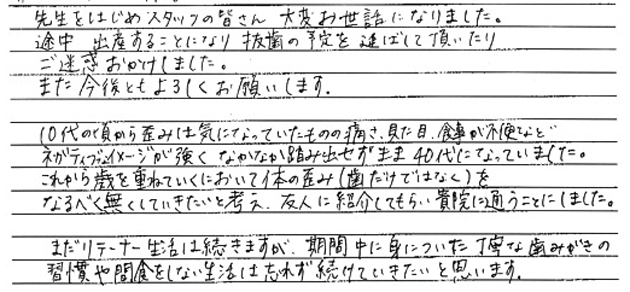 先生をはじめスタッフの皆さん 大変お世話になりました。
途中 出産することになり 抜歯の予定を延ばして頂いたり
ご迷惑おかけしました。
また今後ともよろしくお願いします。
10代の頃から歪みは気になっていたものの痛さ、見た目、食事が不便など
ネガティブなイメージが強く なかなか踏み出せずまま 40代になっていました。
これから歳を重ねていくにおいて体の歪み(歯だけではなく)を
なるべく無くしていきたいと考え、友人に紹介してもらい貴院に通うことにしました。
まだリテーナー生活は続きますが、期間中に身についた丁寧な歯みがきの
習慣や間食をしない生活は忘れず続けていきたいと思います。